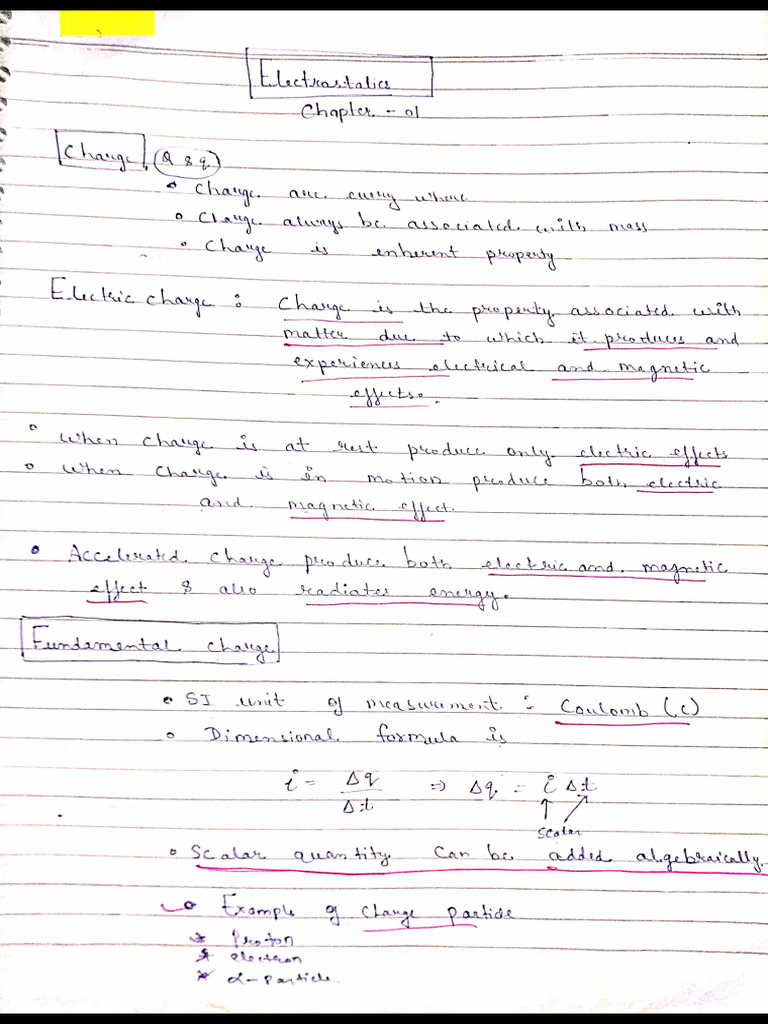 Electrostatics
Chapter - 01
Charge, Q & q
• Charge are every where
• Charge always be associated with mass
• Charge is enherent property
Electric charge : Charge is the property associated with
matter due to which it produces and
experiences electrical and magnetic
effects.
• When charge is at rest produce only electric effects
• When charge is in motion produce both electric
and magnetic effect.
• Accelerated charge produce both electric and magnetic
effect & also radiates energy.
Fundamental charge
• SI unit of measurement : Coulomb (c)
• Dimensional formula is
i = Δq/Δt ⇒ Δq = i Δt
scalar
• Scalar quantity can be added algebraically.
• Example of charge particle
* Proton
* electron
* α-particle.